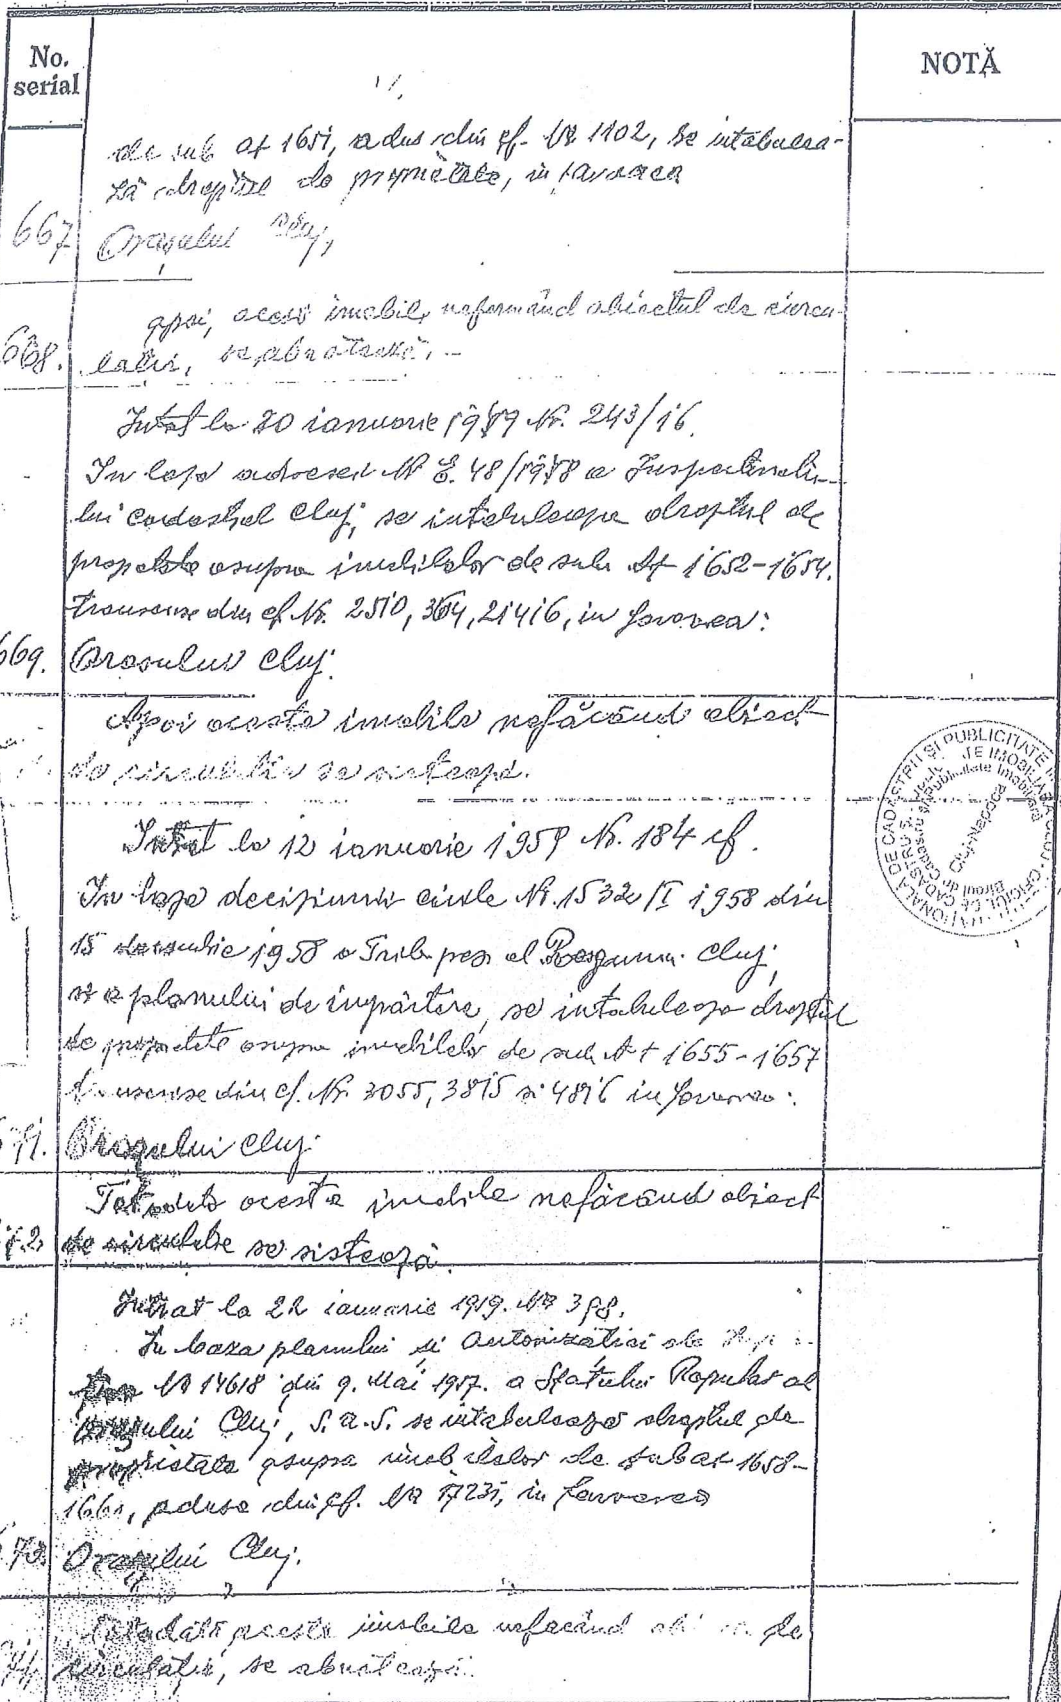 No.
serial
NOTĂ
de sub A+ 1651, adus din cf. No 1102, se intabulea-
ză dreptul de proprietate, in favoarea
667 Orașului Cluj,
apoi, acest imobil, neformând obiectul de circu-
668. lație,
Intrat la 20 ianuarie 1959 Nr. 243/16.
In baza adresei Nr 48/1958 a Inspectoratu-
lui Cadastral Cluj, se intabuleaza dreptul de
proprietate asupra imobilelor de sub A+ 1652-1654.
transcrise din cf Nr. 2510, 21416, in favoarea:
669. Orasului Cluj.
Apoi aceste imobile nefăcând obiect
de circulatie se sisteaza.
Intrat la 12 ianuarie 1959 Nr. 184 cf.
In baza deciziunii civile Nr. 1532/I 1958 din
15 decembrie 1958 a Trib. pop. al Cluj,
si a planului de împărțire, se intabuleaza dreptul
de proprietate asupra imobilelor de sub A+ 1655-1657
transcrise din cf. Nr. 3055, 3815 si 4816 in favoarea:
71. Orașului Cluj.
Totodata aceste imobile nefăcând obiect
72. de circulatie se sistează.
Intrat la 22 ianuarie 1959. No 398.
In baza planului și Autorizației de
No 14618 din 9. Mai 1957. a Sfatului Popular al
orașului Cluj, S.A.S. se intabulează dreptul de
proprietate asupra imobilelor de sub A+ 1658-
1661, aduse din cf. No 17231, in favoarea
73. Orașului Cluj.
Totodată aceste imobile nefacând de
74. circulație, se
CADASTRU ȘI PUBLICITATE
Cluj-Napoca